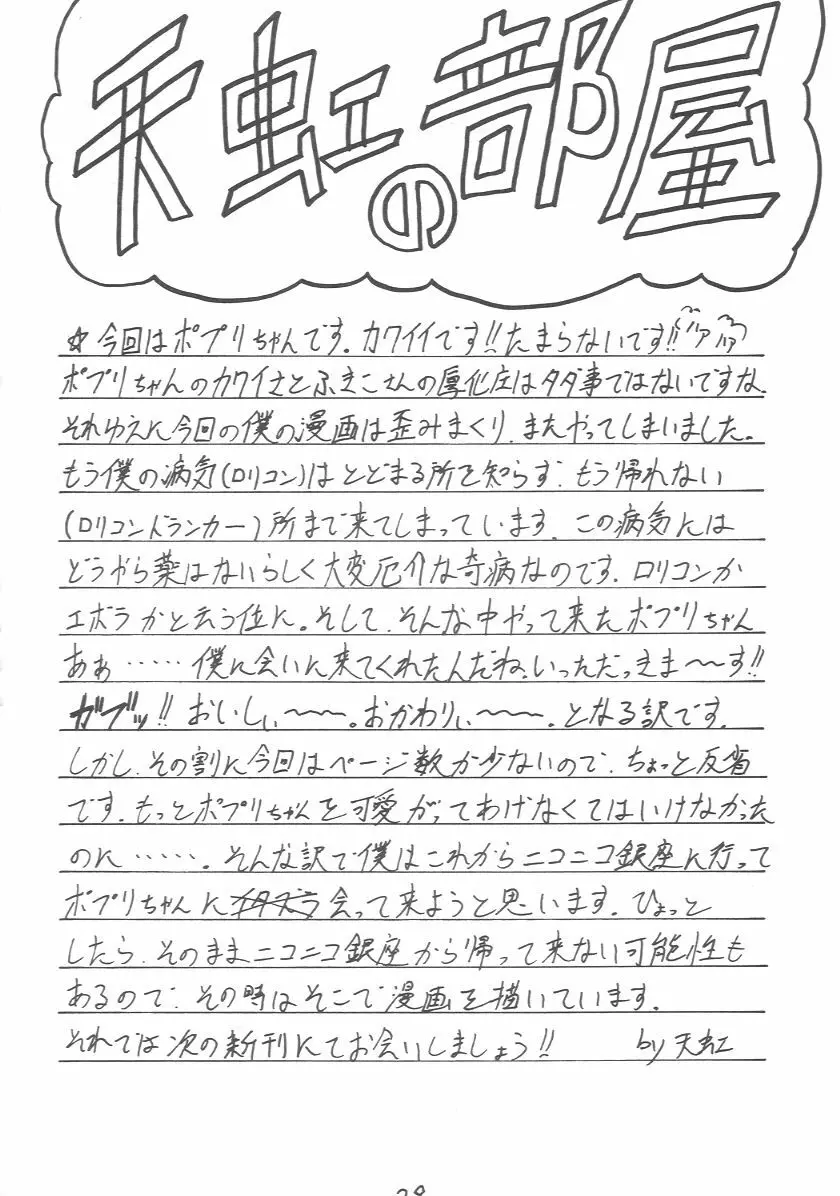 天虹の部屋
☆今回はポプリちゃんです。カワイイです!!たまらないです!!ハァハァ
ポプリちゃんのカワイさとふきこさんの厚化庄はタダ事ではないですな。
それゆえに今回の僕の漫画は歪みまくり、またやってしまいました。
もう僕の病気(ロリコン)はとどまる所を知らず、もう帰れない
(ロリコンドランカー)所まで来てしまっています。この病気には
どうやら薬はないらしく大変厄介な奇病なのです。ロリコンか
エボラかと云う位に。そして、そんな中やって来たポプリちゃん
あぁ……僕に会いに来てくれたんだね、いっただっきま〜〜す!!
ガブッ!!おいしぃ〜〜。おかわりぃ〜〜。となる訳です。
しかし、その割に今回はページ数が少ないので、ちょっと反省
です。もっとポプリちゃんを可愛がってあげなくてはいけなかった
のに……。そんな訳で僕はこれからニコニコ銀座に行って
ポプリちゃんにイタズラ会って来ようと思います。ひょっと
したら、そのままニコニコ銀座から帰って来ない可能性も
あるので、その時はそこで漫画を描いています。
それでは次の新刊にてお会いしましょう!! by 天虹
28